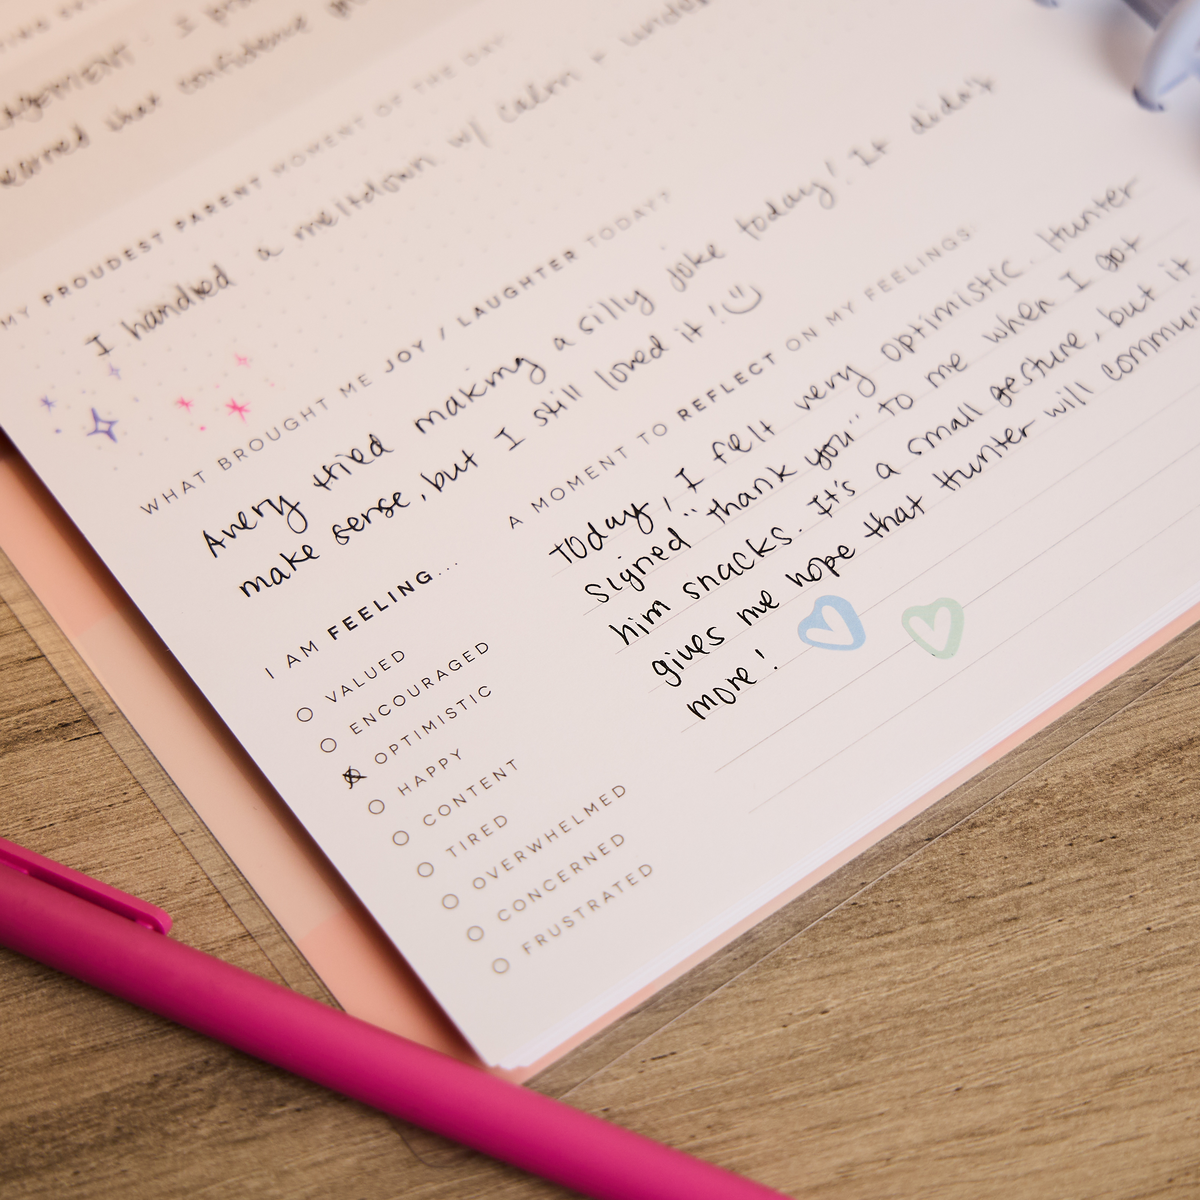 earned that confidence
MY PROUDEST PARENT MOMENT OF THE DAY
I handled a meltdown w/ calm +
WHAT BROUGHT ME JOY / LAUGHTER TODAY?
Avery tried making a silly joke today! It didn't
make sense, but I still loved it! :)
I AM FEELING...
VALUED
ENCOURAGED
OPTIMISTIC
HAPPY
CONTENT
TIRED
OVERWHELMED
CONCERNED
FRUSTRATED
A MOMENT TO REFLECT ON MY FEELINGS:
Today, I felt very optimistic. Hunter
signed "thank you" to me when I got
him snacks. It's a small gesture, but it
gives me hope that Hunter will
more!